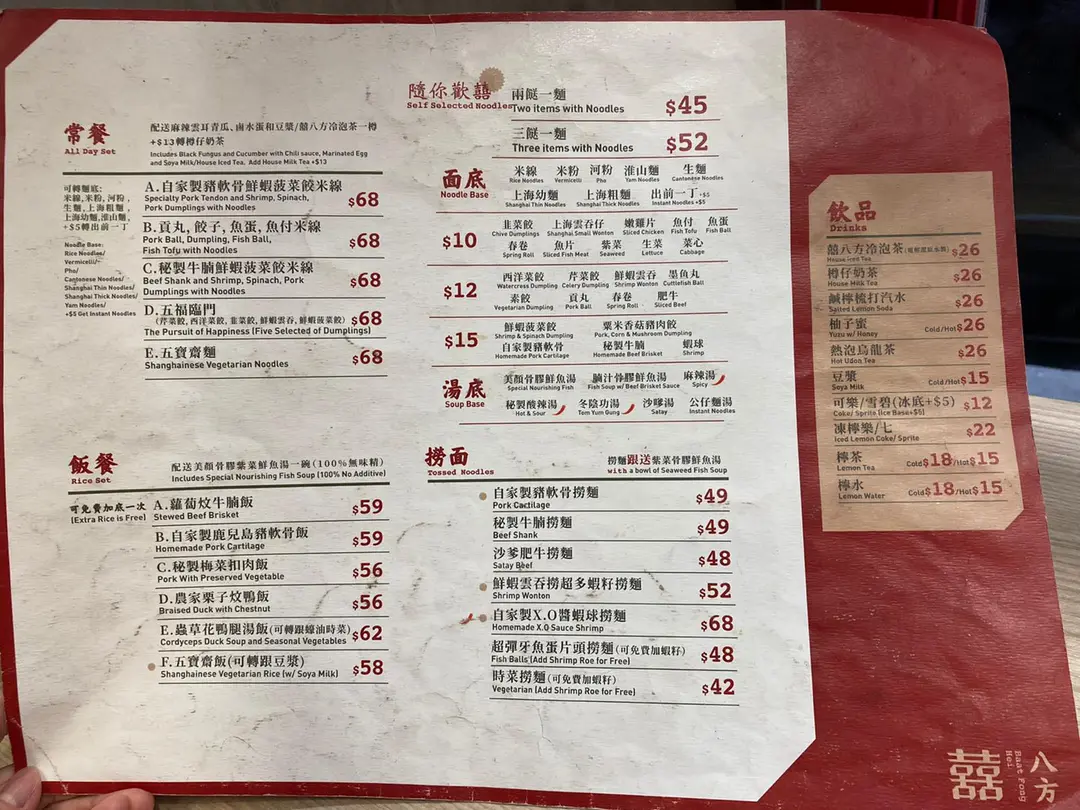 常餐
All Day Set
配送麻辣雲耳青瓜、鹵水蛋和豆漿/囍八方冷泡茶一樽
+$13轉樽仔奶茶
Includes Black Fungus and Cucumber with Chili sauce, Marinated Egg
and Soya Milk/House Iced Tea, Add House Milk Tea +$13
可轉麵底:
米線,米粉,河粉,
生麵,上海粗麵,
上海幼麵,淮山麵,
+$5轉出前一丁
Noodle Base:
Rice Noodles/
Vermicelli/
Pho/
Cantonese Noodles/
Shanghai Thin Noodles/
Shanghai Thick Noodles/
Yam Noodles/
+$5 Get Instant Noodles
A.自家製豬軟骨鮮蝦菠菜餃米線
Specialty Pork Tendon and Shrimp, Spinach,
Pork Dumplings with Noodles
$68
B.貢丸,餃子,魚蛋,魚付米線
Pork Ball, Dumpling, Fish Ball,
Fish Tofu with Noodles
$68
C.秘製牛腩鮮蝦菠菜餃米線
Beef Shank and Shrimp, Spinach, Pork
Dumplings with Noodles
$68
D.五福臨門
(芹菜餃,西洋菜餃,韭菜餃,鮮蝦雲吞,鮮蝦菠菜餃)
The Pursuit of Happiness (Five Selected of Dumplings)
$68
E.五寶齋麵
Shanghainese Vegetarian Noodles
$68
飯餐
Rice Set
配送美顏骨膠紫菜鮮魚湯一碗(100%無味精)
Includes Special Nourishing Fish Soup (100% No Additive)
可免費加底一次
(Extra Rice is Free)
A.蘿蔔炆牛腩飯
Stewed Beef Brisket
$59
B.自家製鹿兒島豬軟骨飯
Homemade Pork Cartilage
$59
C.秘製梅菜扣肉飯
Pork With Preserved Vegetable
$56
D.農家栗子炆鴨飯
Braised Duck with Chestnut
$56
E.蟲草花鴨腿湯飯(可轉跟蠔油時菜)
Cordyceps Duck Soup and Seasonal Vegetables
$62
F.五寶齋飯(可轉跟豆漿)
Shanghainese Vegetarian Rice (w/ Soya Milk)
$58
隨你歡囍
Self Selected Noodles
兩餸一麵
Two items with Noodles
$45
三餸一麵
Three items with Noodles
$52
面底
Noodle Base
米線 米粉 河粉 淮山麵 生麵
Rice Noodles Vermicelli Pho Yam Noodles Cantonese Noodles
上海幼麵 上海粗麵 出前一丁+$5
Shanghai Thin Noodles Shanghai Thick Noodles Instant Noodles +$5
$10
韭菜餃 上海雲吞仔 嫩雞片 魚付 魚蛋
Chive Dumplings Shanghai Small Wonton Sliced Chicken Fish Tofu Fish Ball
春卷 魚片 紫菜 生菜 菜心
Spring Roll Sliced Fish Meat Seaweed Lettuce Cabbage
$12
西洋菜餃 芹菜餃 鮮蝦雲吞 墨魚丸
Watercress Dumpling Celery Dumpling Shrimp Wonton Cuttlefish Ball
素餃 貢丸 春卷 肥牛
Vegetarian Dumpling Pork Ball Spring Roll Sliced Beef
$15
鮮蝦菠菜餃 粟米香菇豬肉餃
Shrimp & Spinach Dumpling Pork, Corn & Mushroom Dumpling
自家製豬軟骨 秘製牛腩 蝦球
Homemade Pork Cartilage Homemade Beef Brisket Shrimp
湯底
Soup Base
美顏骨膠鮮魚湯 腩汁骨膠鮮魚湯 麻辣湯
Special Nourishing Fish Fish Soup w/ Beef Brisket Sauce Spicy
秘製酸辣湯 冬陰功湯 沙嗲湯 公仔麵湯
Hot & Sour Tom Yum Gung Satay Instant Noodles
撈面
Tossed Noodles
撈麵跟送紫菜骨膠鮮魚湯
with a bowl of Seaweed Fish Soup
自家製豬軟骨撈麵
Pork Cactilage
$49
秘製牛腩撈麵
Beef Shank
$49
沙爹肥牛撈麵
Satay Beef
$48
鮮蝦雲吞撈超多蝦籽撈麵
Shrimp Wonton
$52
自家製X.O醬蝦球撈麵
Homemade X.O Sauce Shrimp
$68
超彈牙魚蛋片頭撈麵(可免費加蝦籽)
Fish Balls (Add Shrimp Roe for Free)
$48
時菜撈麵(可免費加蝦籽)
Vegetarian (Add Shrimp Roe for Free)
$42
飲品
Drinks
囍八方冷泡茶
House Iced Tea
$26
樽仔奶茶
House Milk Tea
$26
鹹檸梳打汽水
Salted Lemon Soda
$26
柚子蜜
Yuzu w/ Honey
Cold/Hot $26
熱泡烏龍茶
Hot Udon Tea
$26
豆漿
Soya Milk
Cold/Hot $15
可樂/雪碧(冰底+$5)
Coke/ Sprite (Ice Base+$5)
$12
凍檸樂/七
Iced Lemon Coke/ Sprite
$22
檸茶
Lemon Tea
Cold $18/Hot $15
檸水
Lemon Water
Cold $18/Hot $15
囍
八方
Baat Fong
Hei